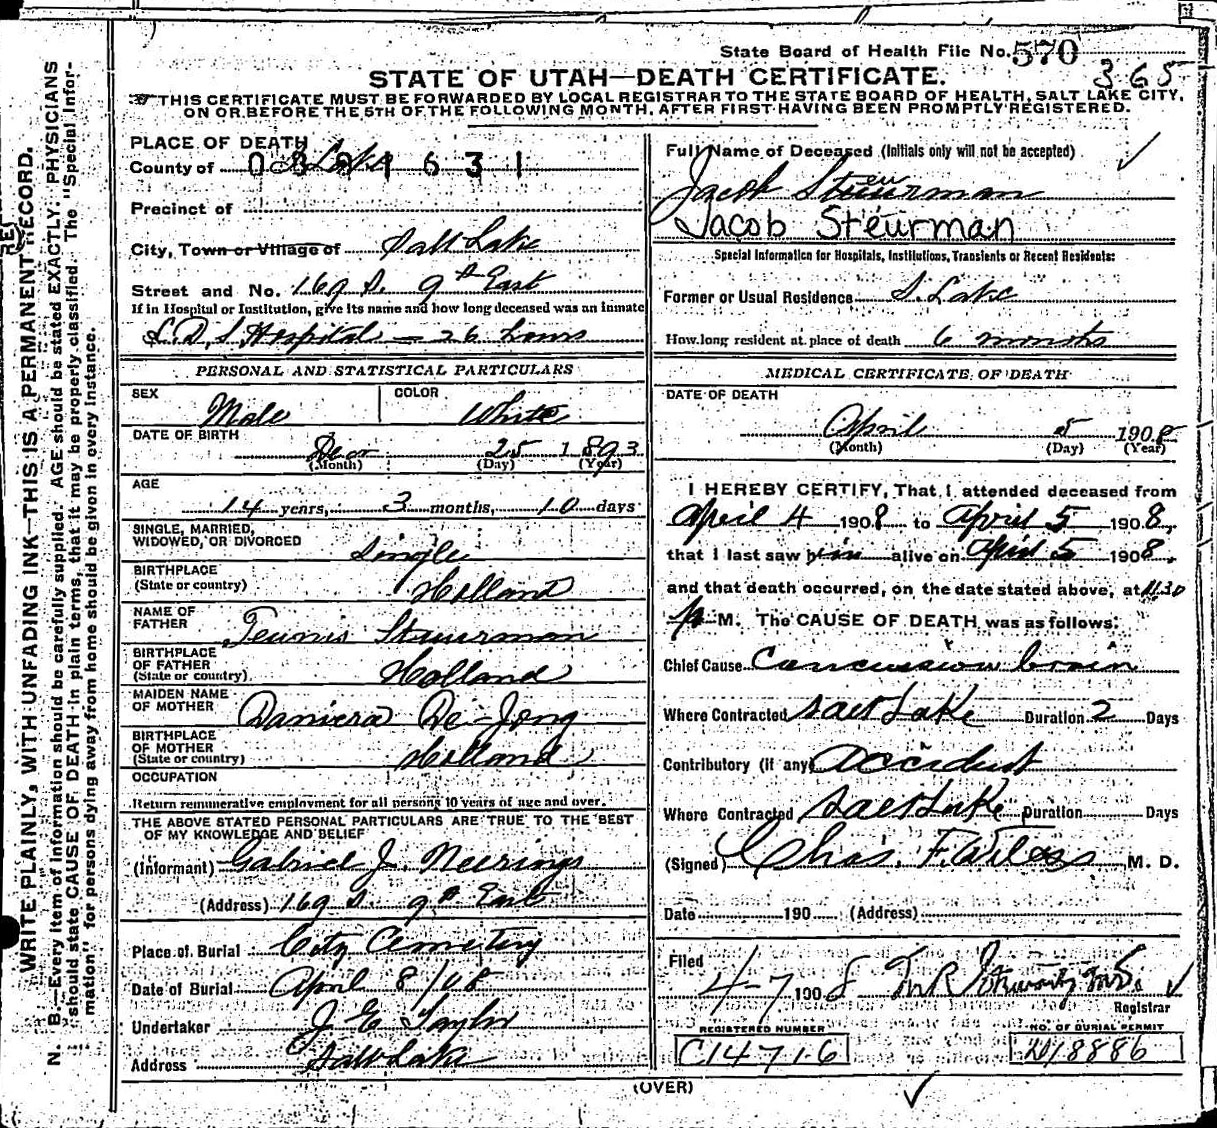 State Board of Health File No. 570
365
STATE OF UTAH—DEATH CERTIFICATE.
THIS CERTIFICATE MUST BE FORWARDED BY LOCAL REGISTRAR TO THE STATE BOARD OF HEALTH, SALT LAKE CITY,
ON OR BEFORE THE 5TH OF THE FOLLOWING MONTH, AFTER FIRST HAVING BEEN PROMPTLY REGISTERED.
WRITE PLAINLY, WITH UNFADING INK—THIS IS A PERMANENT RECORD.
N. B.—Every item of information should be carefully supplied. AGE should be stated EXACTLY. PHYSICIANS
should state CAUSE OF DEATH in plain terms, that it may be properly classified. The "Special Infor-
mation" for persons dying away from home should be given in every instance.
PLACE OF DEATH
County of S. Lake
Precinct of
City, Town or Village of Salt Lake
Street and No. 169 S. 9th East
If in Hospital or Institution, give its name and how long deceased was an inmate
L.D.S. Hospital — 26 hours
PERSONAL AND STATISTICAL PARTICULARS
SEX Male COLOR White
DATE OF BIRTH
Dec 25 1893
(Month) (Day) (Year)
AGE
14 years, 3 months, 10 days
SINGLE, MARRIED,
WIDOWED, OR DIVORCED Single
BIRTHPLACE
(State or country) Holland
NAME OF
FATHER Teunis Steurman
BIRTHPLACE
OF FATHER
(State or country) Holland
MAIDEN NAME
OF MOTHER De Jong
BIRTHPLACE
OF MOTHER
(State or country) Holland
OCCUPATION
Return remunerative employment for all persons 10 years of age and over.
THE ABOVE STATED PERSONAL PARTICULARS ARE TRUE TO THE BEST
OF MY KNOWLEDGE AND BELIEF
(Informant) Gabriel J. Neerings
(Address) 169 S. 9th East
Place of Burial City Cemetery
Date of Burial April 8/08
Undertaker J E Taylor
Address Salt Lake
Full Name of Deceased (Initials only will not be accepted)
Jacob Steurman
Jacob Steurman
Special Information for Hospitals, Institutions, Transients or Recent Residents:
Former or Usual Residence S. Lake
How long resident at place of death 6 months
MEDICAL CERTIFICATE OF DEATH
DATE OF DEATH
April 5 1908
(Month) (Day) (Year)
I HEREBY CERTIFY, That I attended deceased from
April 4 1908 to April 5 1908,
that I last saw him alive on April 5 1908,
and that death occurred, on the date stated above, at 11.30
P M. The CAUSE OF DEATH was as follows:
Chief Cause Concussion brain
Where Contracted Salt Lake Duration 2 Days
Contributory (if any) Accident
Where Contracted Salt Lake Duration Days
(Signed) Chas. F. M. D.
Date 190 (Address)
Filed
4-7 1908
Registrar
REGISTERED NUMBER
C14716
NO. OF BURIAL PERMIT
D18886
(OVER)